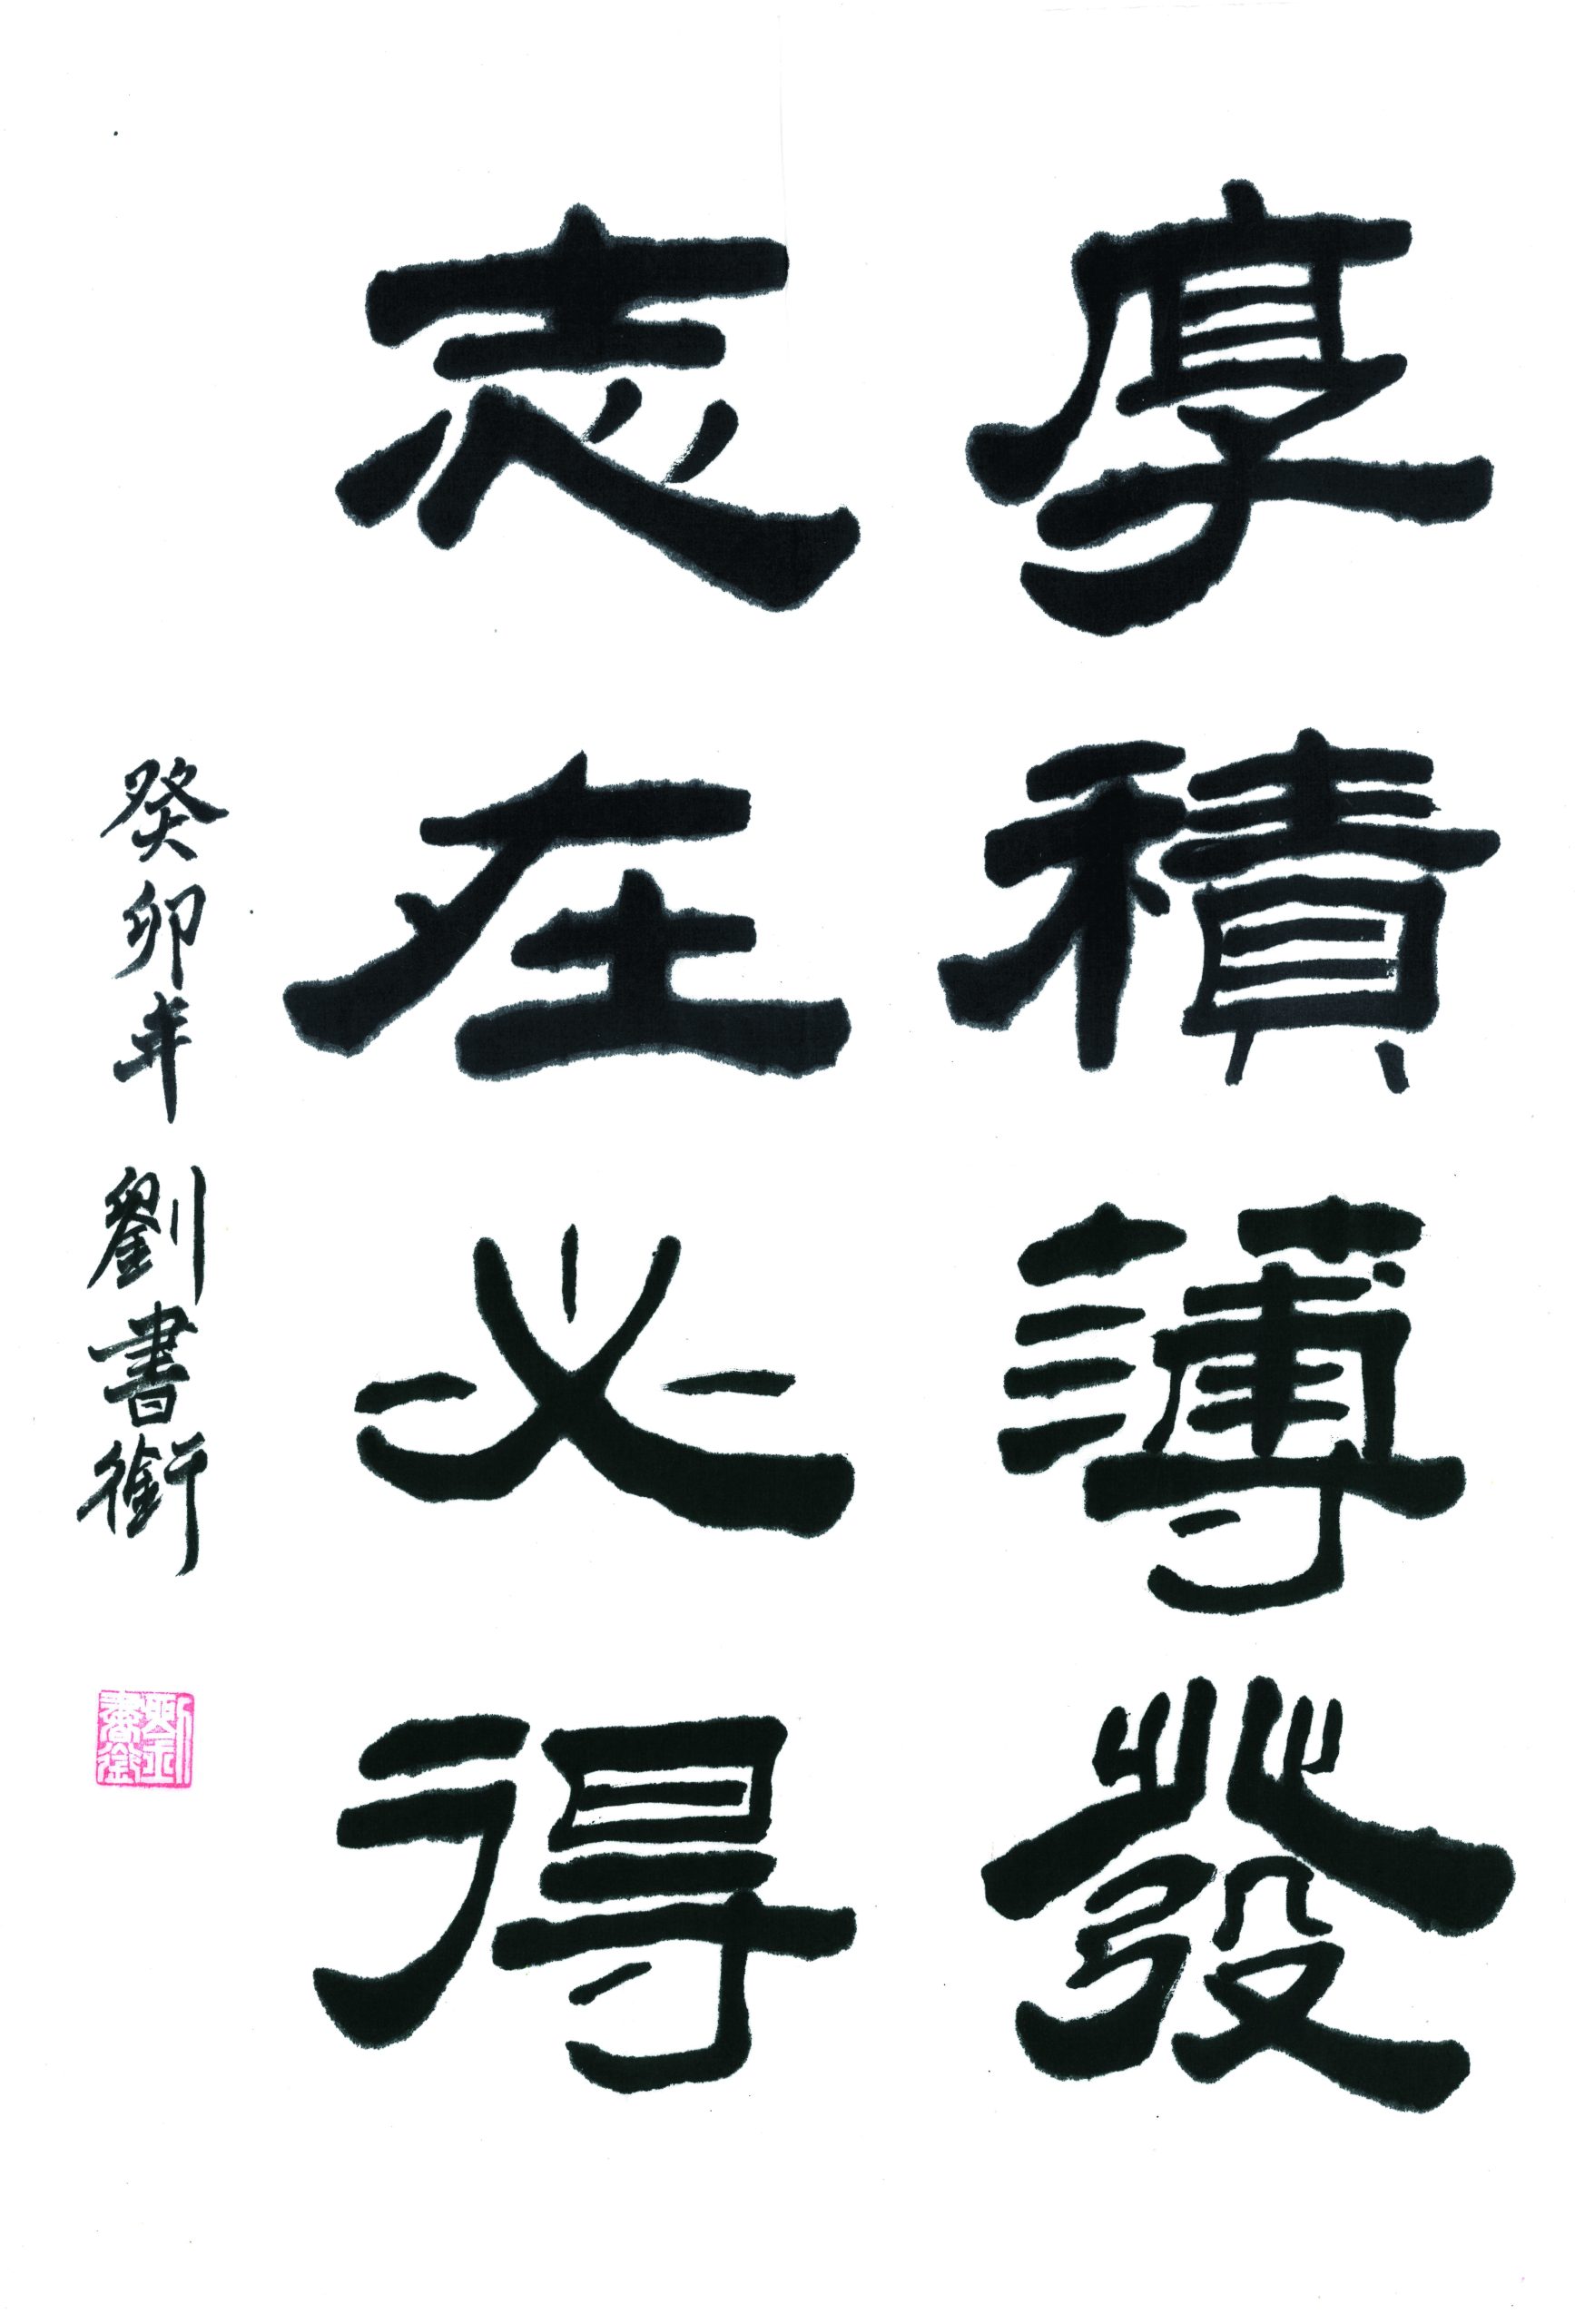 厚積薄發
志在必得
癸卯年 劉書銜
劉書銜